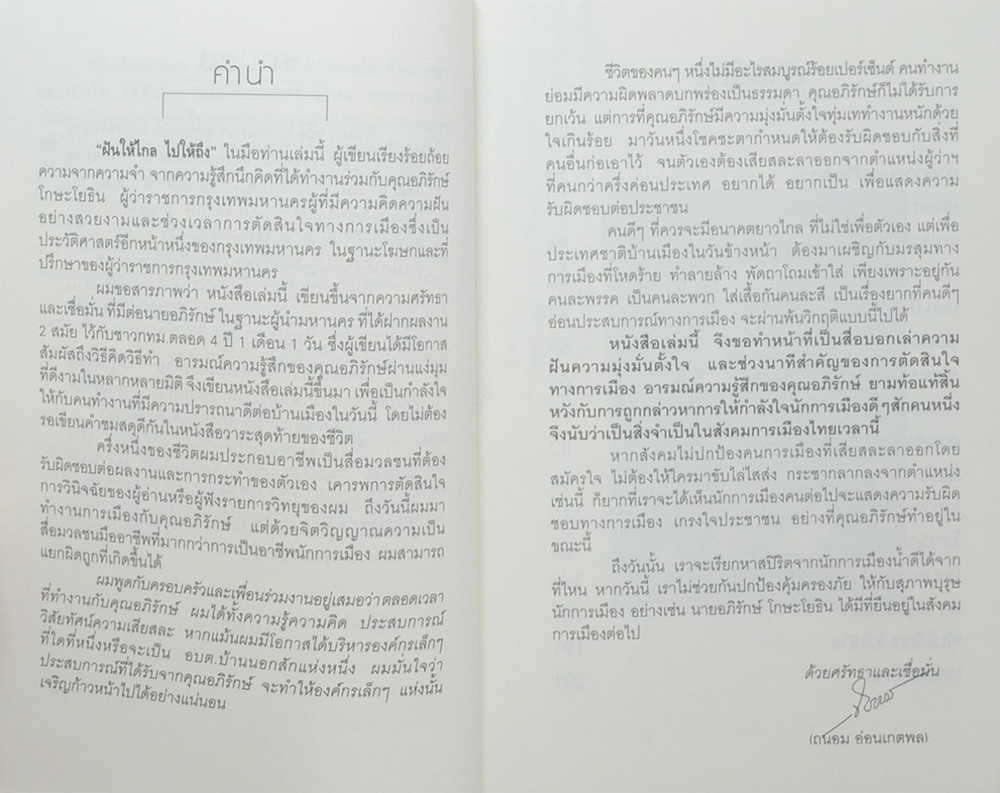 คำนำ
"ฝันให้ไกล ไปให้ถึง" ในมือท่านเล่มนี้ ผู้เขียนเรียงร้อยถ้อย
ความจากความจำ จากความรู้สึกนึกคิดที่ได้ทำงานร่วมกับคุณอภิรักษ์
โกษะโยธิน ผู้ว่าราชการกรุงเทพมหานครผู้ที่มีความคิดความฝัน
อย่างสวยงามและช่วงเวลาการตัดสินใจทางการเมืองซึ่งเป็น
ประวัติศาสตร์อีกหน้าหนึ่งของกรุงเทพมหานคร ในฐานะโฆษกและที่
ปรึกษาของผู้ว่าราชการกรุงเทพมหานคร
ผมขอสารภาพว่า หนังสือเล่มนี้ เขียนขึ้นจากความศรัทธา
และเชื่อมั่น ที่มีต่อนายอภิรักษ์ ในฐานะผู้นำมหานคร ที่ได้ฝากผลงาน
2 สมัย ไว้กับชาวกทม.ตลอด 4 ปี 1 เดือน 1 วัน ซึ่งผู้เขียนได้มีโอกาส
สัมผัสถึงวิธีคิดวิธีทำ อารมณ์ความรู้สึกของคุณอภิรักษ์ผ่านแง่มุม
ที่ดีงามในหลากหลายมิติ จึงเขียนหนังสือเล่มนี้ขึ้นมา เพื่อเป็นกำลังใจ
ให้กับคนทำงานที่มีความปรารถนาดีต่อบ้านเมืองในวันนี้ โดยไม่ต้อง
รอเขียนคำชมสดุดีกันในหนังสือวาระสุดท้ายของชีวิต
ครึ่งหนึ่งของชีวิตผมประกอบอาชีพเป็นสื่อมวลชนที่ต้อง
รับผิดชอบต่อผลงานและการกระทำของตัวเอง เคารพการตัดสินใจ
การวินิจฉัยของผู้อ่านหรือผู้ฟังรายการวิทยุของผม ถึงวันนี้ผมมา
ทำงานการเมืองกับคุณอภิรักษ์ แต่ด้วยจิตวิญญาณความเป็น
สื่อมวลชนมืออาชีพที่มากกว่าการเป็นอาชีพนักการเมือง ผมสามารถ
แยกผิดถูกที่เกิดขึ้นได้
ผมพูดกับครอบครัวและเพื่อนร่วมงานอยู่เสมอว่าตลอดเวลา
ที่ทำงานกับคุณอภิรักษ์ ผมได้ทั้งความรู้ความคิด ประสบการณ์
วิสัยทัศน์ความเสียสละ หากแม้นผมมีโอกาสได้บริหารองค์กรเล็กๆ
ที่ใดที่หนึ่งหรือจะเป็น อบต.บ้านนอกสักแห่งหนึ่ง ผมมั่นใจว่า
ประสบการณ์ที่ได้รับจากคุณอภิรักษ์ จะทำให้องค์กรเล็กๆ แห่งนั้น
เจริญก้าวหน้าไปได้อย่างแน่นอน
ชีวิตของคนๆ หนึ่งไม่มีอะไรสมบูรณ์ร้อยเปอร์เซ็นต์ คนทำงาน
ย่อมมีความผิดพลาดบกพร่องเป็นธรรมดา คุณอภิรักษ์ก็ไม่ได้รับการ
ยกเว้น แต่การที่คุณอภิรักษ์มีความมุ่งมั่นตั้งใจทุ่มเททำงานหนักด้วย
ใจเกินร้อย มาวันหนึ่งโชคชะตากำหนดให้ต้องรับผิดชอบกับสิ่งที่
คนอื่นก่อเอาไว้ จนตัวเองต้องเสียสละลาออกจากตำแหน่งผู้ว่าฯ
ที่คนกว่าครึ่งค่อนประเทศ อยากได้ อยากเป็น เพื่อแสดงความ
รับผิดชอบต่อประชาชน
คนดีๆ ที่ควรจะมีอนาคตยาวไกล ที่ไม่ใช่เพื่อตัวเอง แต่เพื่อ
ประเทศชาติบ้านเมืองในวันข้างหน้า ต้องมาเผชิญกับมรสุมทาง
การเมืองที่โหดร้าย ทำลายล้าง พัดถาโถมเข้าใส่ เพียงเพราะอยู่กัน
คนละพรรค เป็นคนละพวก ใส่เสื้อกันคนละสี เป็นเรื่องยากที่คนดีๆ
อ่อนประสบการณ์ทางการเมือง จะผ่านพ้นวิกฤติแบบนี้ไปได้
หนังสือเล่มนี้ จึงขอทำหน้าที่เป็นสื่อบอกเล่าความ
ฝันความมุ่งมั่นตั้งใจ และช่วงนาทีสำคัญของการตัดสินใจ
ทางการเมือง อารมณ์ความรู้สึกของคุณอภิรักษ์ ยามท้อแท้สิ้น
หวังกับการถูกกล่าวหาการให้กำลังใจนักการเมืองดีๆสักคนหนึ่ง
จึงนับว่าเป็นสิ่งจำเป็นในสังคมการเมืองไทยเวลานี้
หากสังคมไม่ปกป้องคนการเมืองที่เสียสละลาออกโดย
สมัครใจ ไม่ต้องให้ใครมาขับไล่ไสส่ง กระชากลากลงจากตำแหน่ง
เช่นนี้ ก็ยากที่เราจะได้เห็นนักการเมืองคนต่อไปจะแสดงความรับผิด
ชอบทางการเมือง เกรงใจประชาชน อย่างที่คุณอภิรักษ์ทำอยู่ใน
ขณะนี้
ถึงวันนั้น เราจะเรียกหาสปิริตจากนักการเมืองน้ำดีได้จาก
ที่ไหน หากวันนี้ เราไม่ช่วยกันปกป้องคุ้มครองภัย ให้กับสุภาพบุรุษ
นักการเมือง อย่างเช่น นายอภิรักษ์ โกษะโยธิน ได้มีที่ยืนอยู่ในสังคม
การเมืองต่อไป
ด้วยศรัทธาและเชื่อมั่น
(ถนอม อ่อนเกตพล)